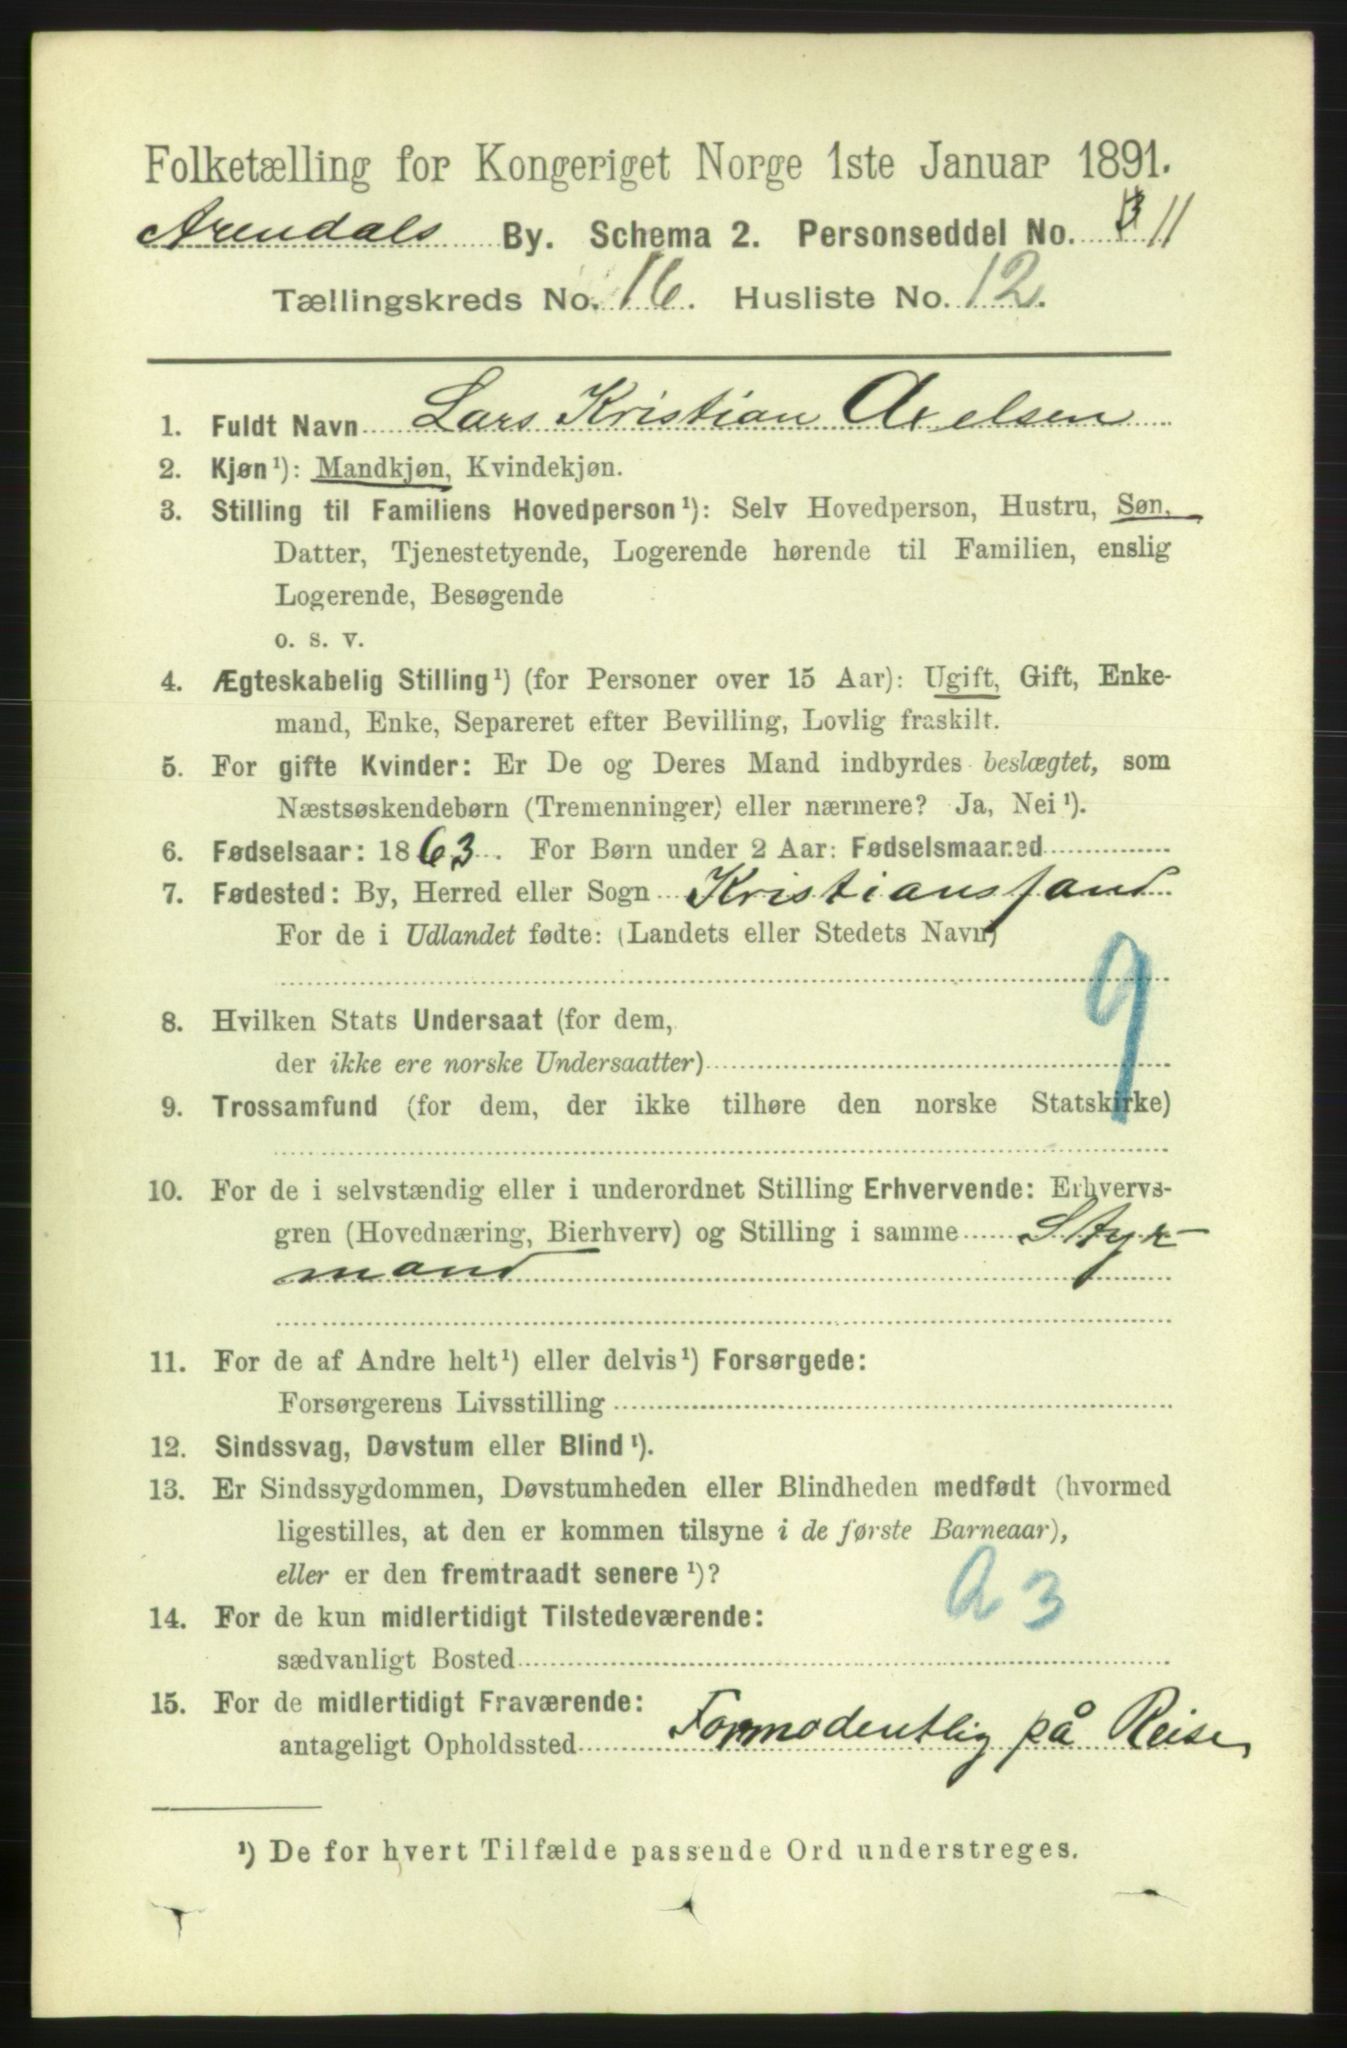 Folketælling for Kongeriget Norge 1ste Januar 1891.
Arendals By. Schema 2. Personseddel No. 11
Tællingskreds No. 16. Husliste No. 12.
1. Fuldt Navn Lars Kristian Axelsen
2. Kjøn¹): Mandkjøn, Kvindekjøn.
3. Stilling til Familiens Hovedperson¹): Selv Hovedperson, Hustru, Søn,
Datter, Tjenestetyende, Logerende hørende til Familien, enslig
Logerende, Besøgende
o. s. v.
4. Ægteskabelig Stilling¹) (for Personer over 15 Aar): Ugift, Gift, Enke-
mand, Enke, Separeret efter Bevilling, Lovlig fraskilt.
5. For gifte Kvinder: Er De og Deres Mand indbyrdes beslægtet, som
Næstsøskendebørn (Tremenninger) eller nærmere? Ja, Nei¹).
6. Fødselsaar: 1863. For Børn under 2 Aar: Fødselsmaaned
7. Fødested: By, Herred eller Sogn Kristianssand
For de i Udlandet fødte: (Landets eller Stedets Navn)
9
8. Hvilken Stats Undersaat (for dem,
der ikke ere norske Undersaatter)
9. Trossamfund (for dem, der ikke tilhøre den norske Statskirke)
10. For de i selvstændig eller i underordnet Stilling Erhvervende: Erhvervs-
gren (Hovednæring, Bierhverv) og Stilling i samme Styr-
mand
11. For de af Andre helt¹) eller delvis¹) Forsørgede:
Forsørgerens Livsstilling
12. Sindssvag, Døvstum eller Blind¹).
13. Er Sindssygdommen, Døvstumheden eller Blindheden medfødt (hvormed
ligestilles, at den er kommen tilsyne i de første Barneaar),
eller er den fremtraadt senere¹)?
a 3
14. For de kun midlertidigt Tilstedeværende:
sædvanligt Bosted
15. For de midlertidigt Fraværende:
antageligt Opholdssted Formodentlig på Reise
¹) De for hvert Tilfælde passende Ord understreges.